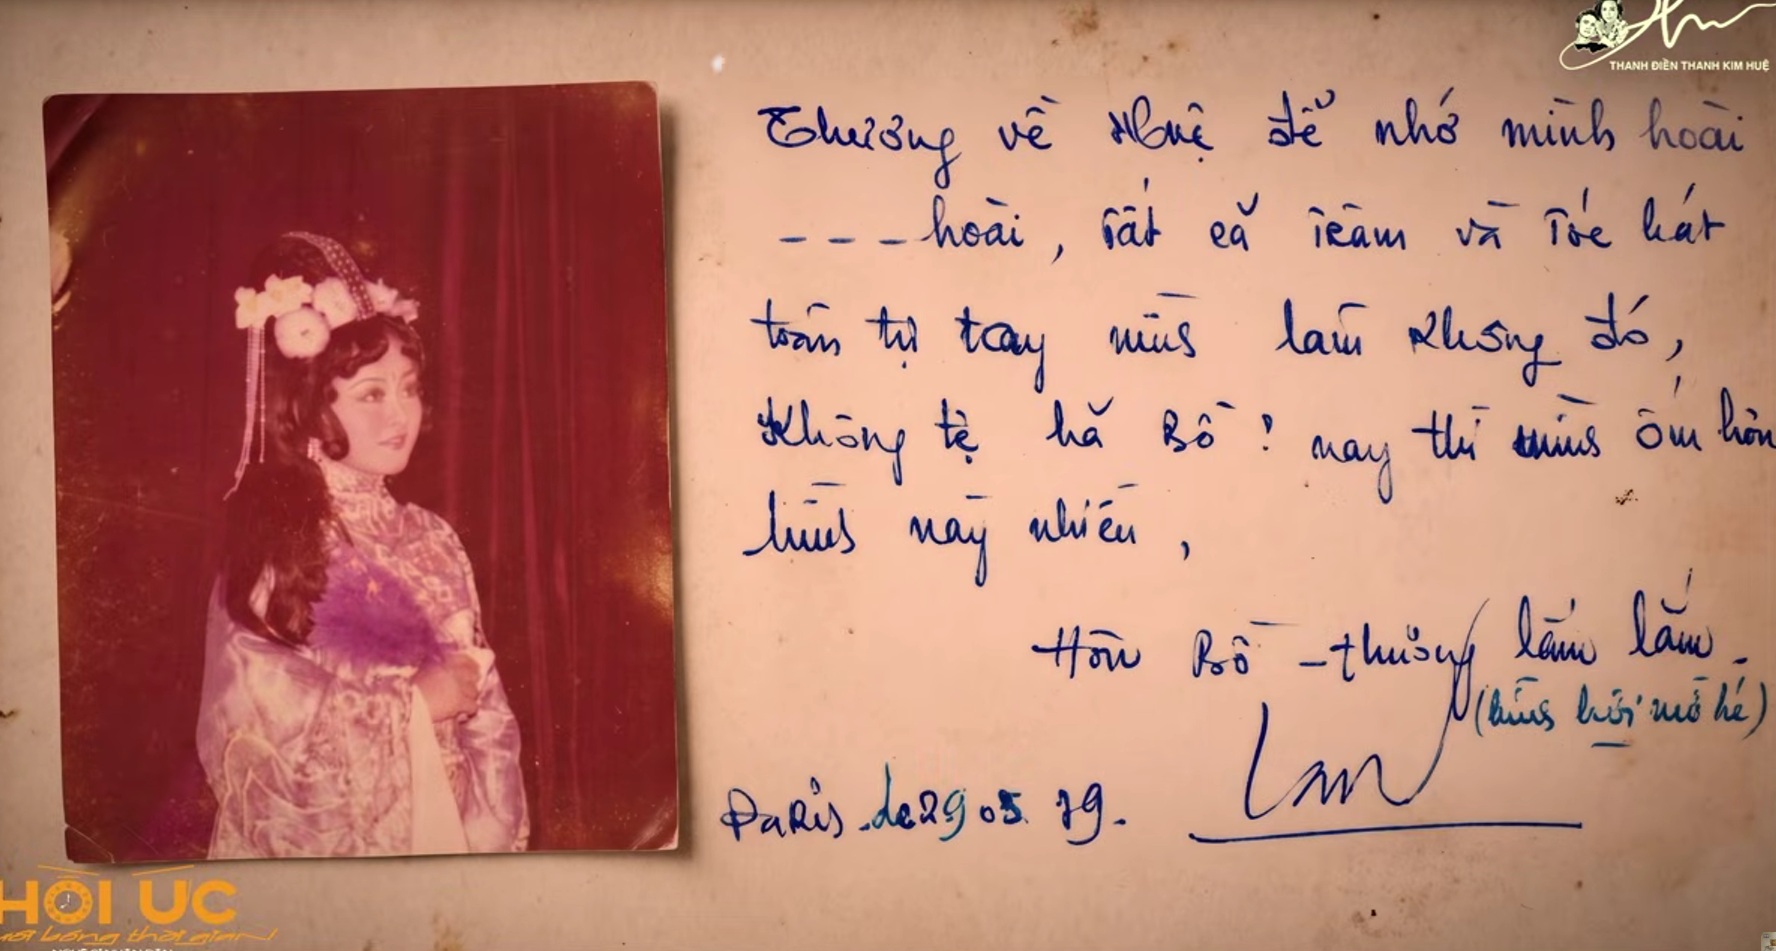 THANH ĐIỀN THANH KIM HUỆ
Thương về Huệ để nhớ mình hoài
- - - hoài, tất cả trâm và tóc hát
toàn tự tay mình làm không đó,
không tệ hả Bồ! nay thì mình ốm hơn
hình này nhiều,
Hôn Bồ - thương lắm lắm.
(hình hơi mờ hé)
Lan
Paris. de 29 05 79.
HỒI ỨC
bóng thời gian